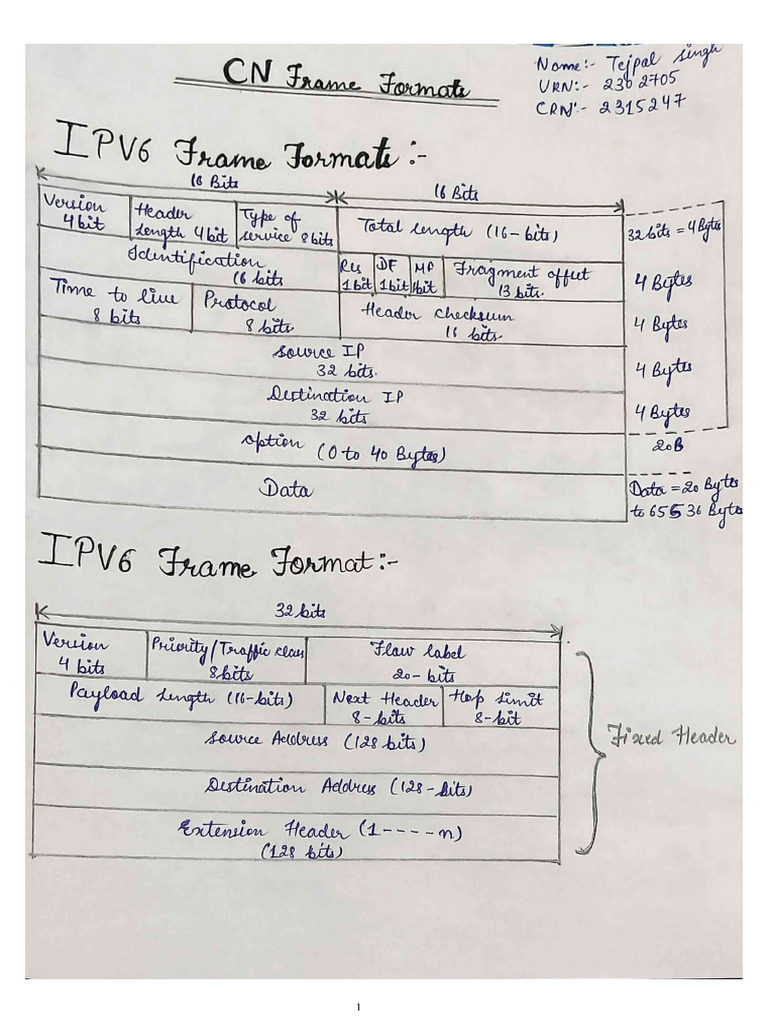 CN Frame Formats
Name:- Tejpal Singh
URN:- 2302705
CRN:- 2315247
IPV6 Frame Formats:-
16 Bits 16 Bits
Version 4 bit Header length 4 bit Type of service 8 bits Total length (16-bits) 32 bits = 4 Bytes
Identification 16 bits Res 1bit DF 1bit MF 1bit Fragment offset 13 bits. 4 Bytes
Time to live 8 bits Protocol 8 bits Header checksum 16 bits. 4 Bytes
Source IP
32 bits. 4 Bytes
Destination IP
32 bits 4 Bytes
option (0 to 40 Bytes) 20B
Data Data = 20 Bytes
to 65536 Bytes
IPV6 Frame Format:-
32 bits
Version 4 bits Priority/Traffic class 8bits Flow label 20-bits
Payload length (16-bits) Next Header 8-bits Hop Limit 8-bit
Source Address (128 bits)
Fixed Header
Destination Address (128-bits)
Extension Header (1----n)
(128 bits)
1